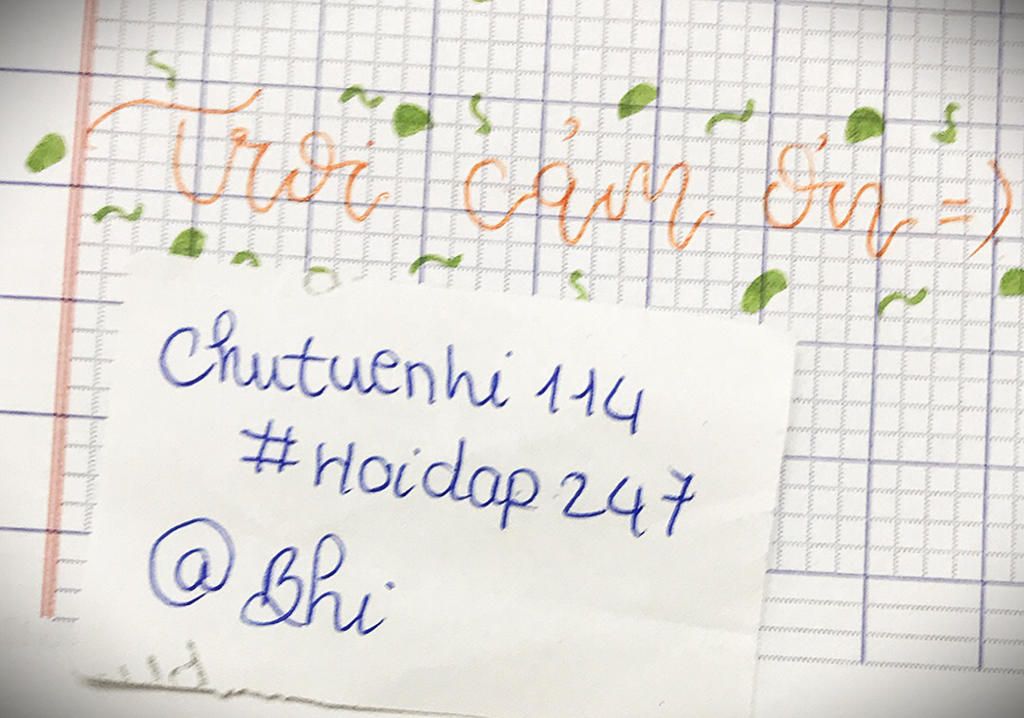 Trời cảm ơn =)
Chutuenhi 114
#Hoidap 247
@Bhi